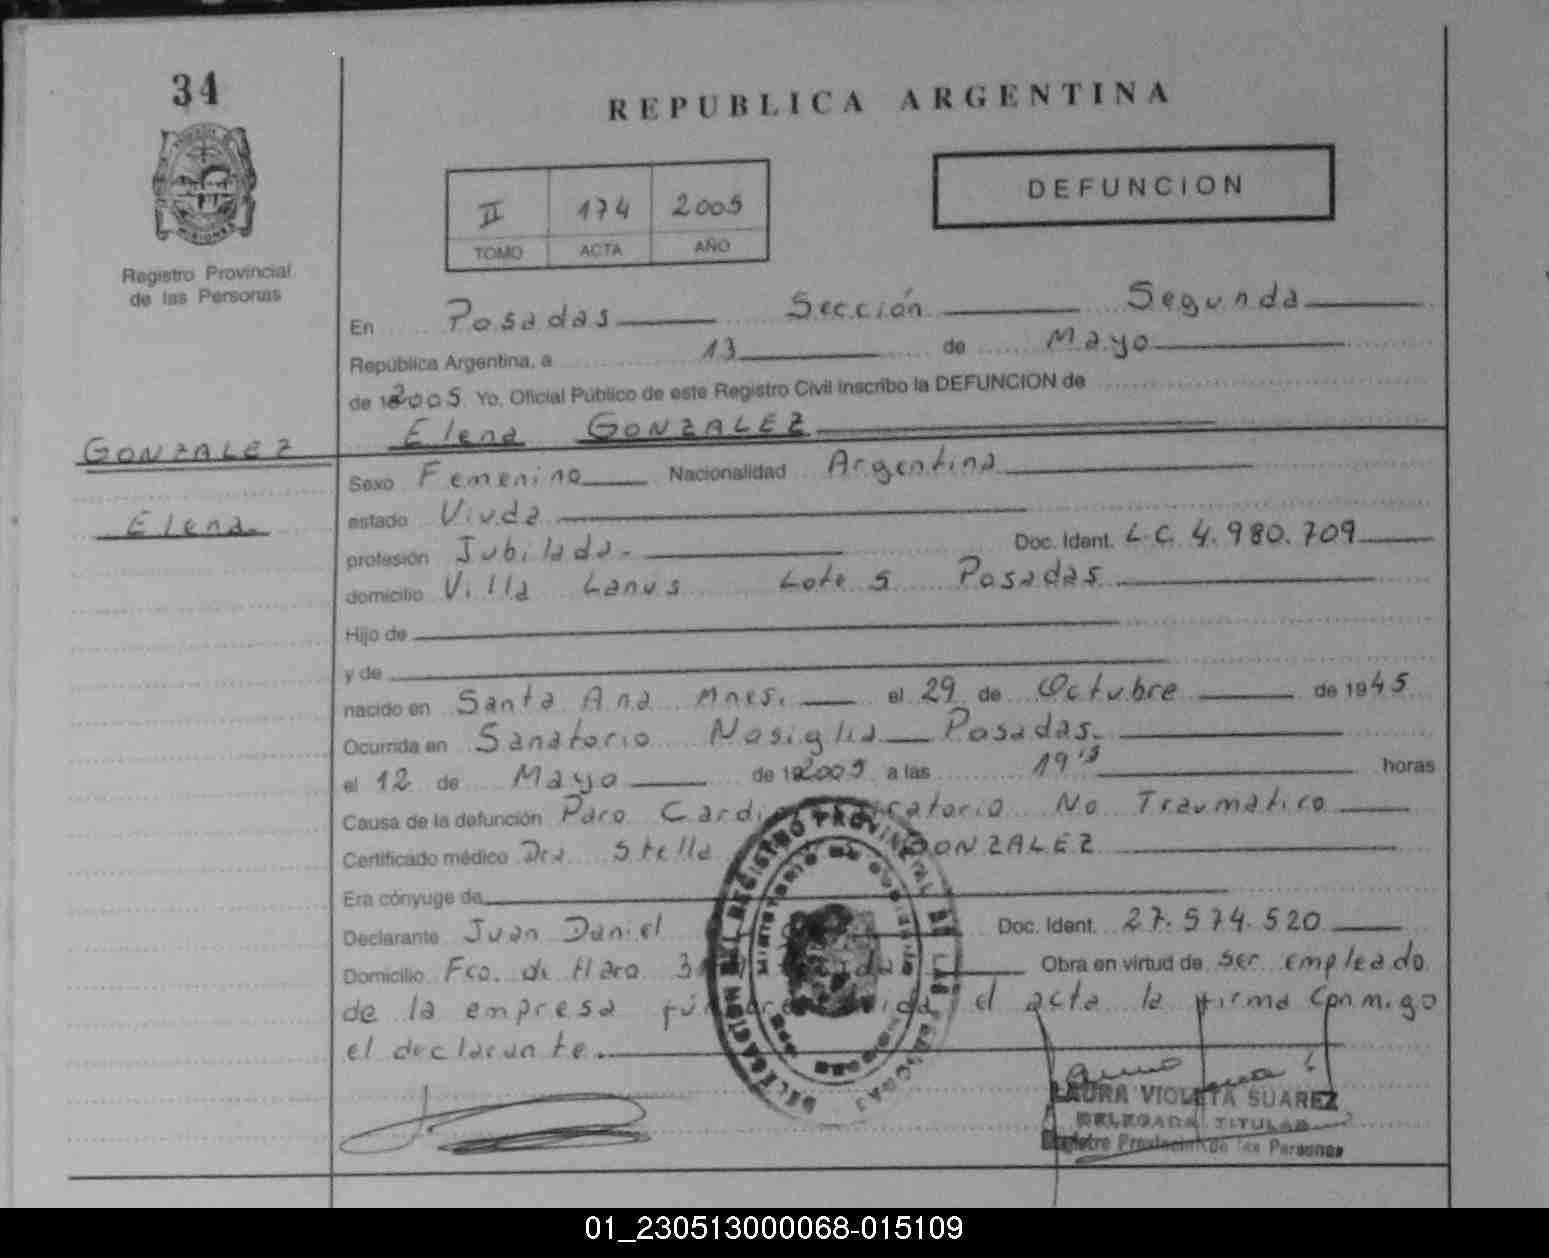 34
REPUBLICA ARGENTINA
MISIONES
Registro Provincial
de las Personas
II 174 2005
TOMO ACTA AÑO
DEFUNCION
En Posadas Sección Segunda
República Argentina, a 13 de Mayo
de 2005 Yo, Oficial Público de este Registro Civil inscribo la DEFUNCION de
Elena GONZALEZ
GONZALEZ
Elena
Sexo Femenino Nacionalidad Argentina
estado Viuda
profesión Jubilada.- Doc. Ident. L.C. 4.980.709
domicilio Villa Lanus Lote 5 Posadas
Hijo de
y de
nacido en Santa Ana Mnes. el 29 de Octubre de 1945
Ocurrida en Sanatorio Nosiglia Posadas.
el 12 de Mayo de 2005 a las 19 15 horas
Causa de la defunción Paro Cardio No Traumático
Certificado médico Dra Stella GONZALEZ
Era cónyuge de
Declarante Juan Daniel Doc. Ident. 27.574.520
Domicilio Fco. de Haro Obra en virtud de ser empleado
de la empresa el acta la firma conmigo
el declarante.
DELEGACION DEL REGISTRO PROVINCIAL DE LAS PERSONAS
MINISTERIO DE GOBIERNO
LAURA VIOLETA SUAREZ
DELEGADA TITULAR
Registro Provincial de las Personas
01_230513000068-015109